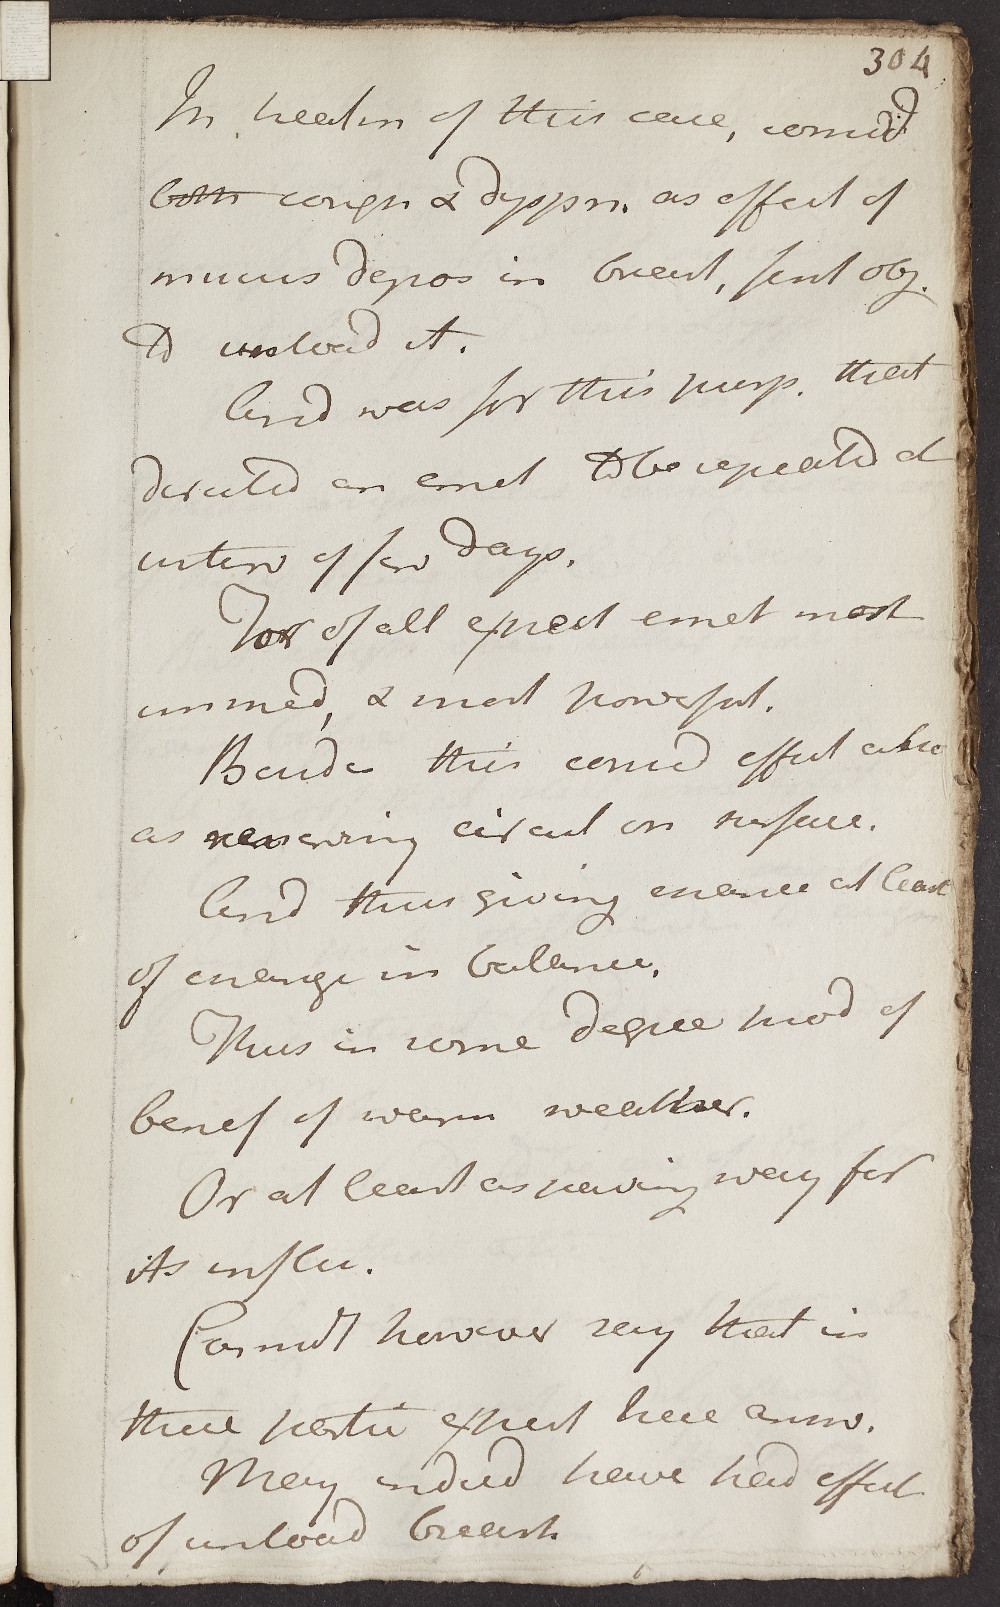 304
In treatm of this case, consid
both cough & dyspn. as effect of
mucus depos in breast, first obj.
to unload it.
And was for this purp. that
directed an emet to be repeated at
interv of few days.
For of all expect emet most
immed, & most powerful.
Beside this consid effect also
as renewing circul on surface.
And thus giving chance at least
of change in balance.
Thus in some degree prod of
benef of warm weather.
Or at least as paving way for
its influ.
Cannot however say that in
these partic expect have answ.
May indeed have had effect
of unload breast